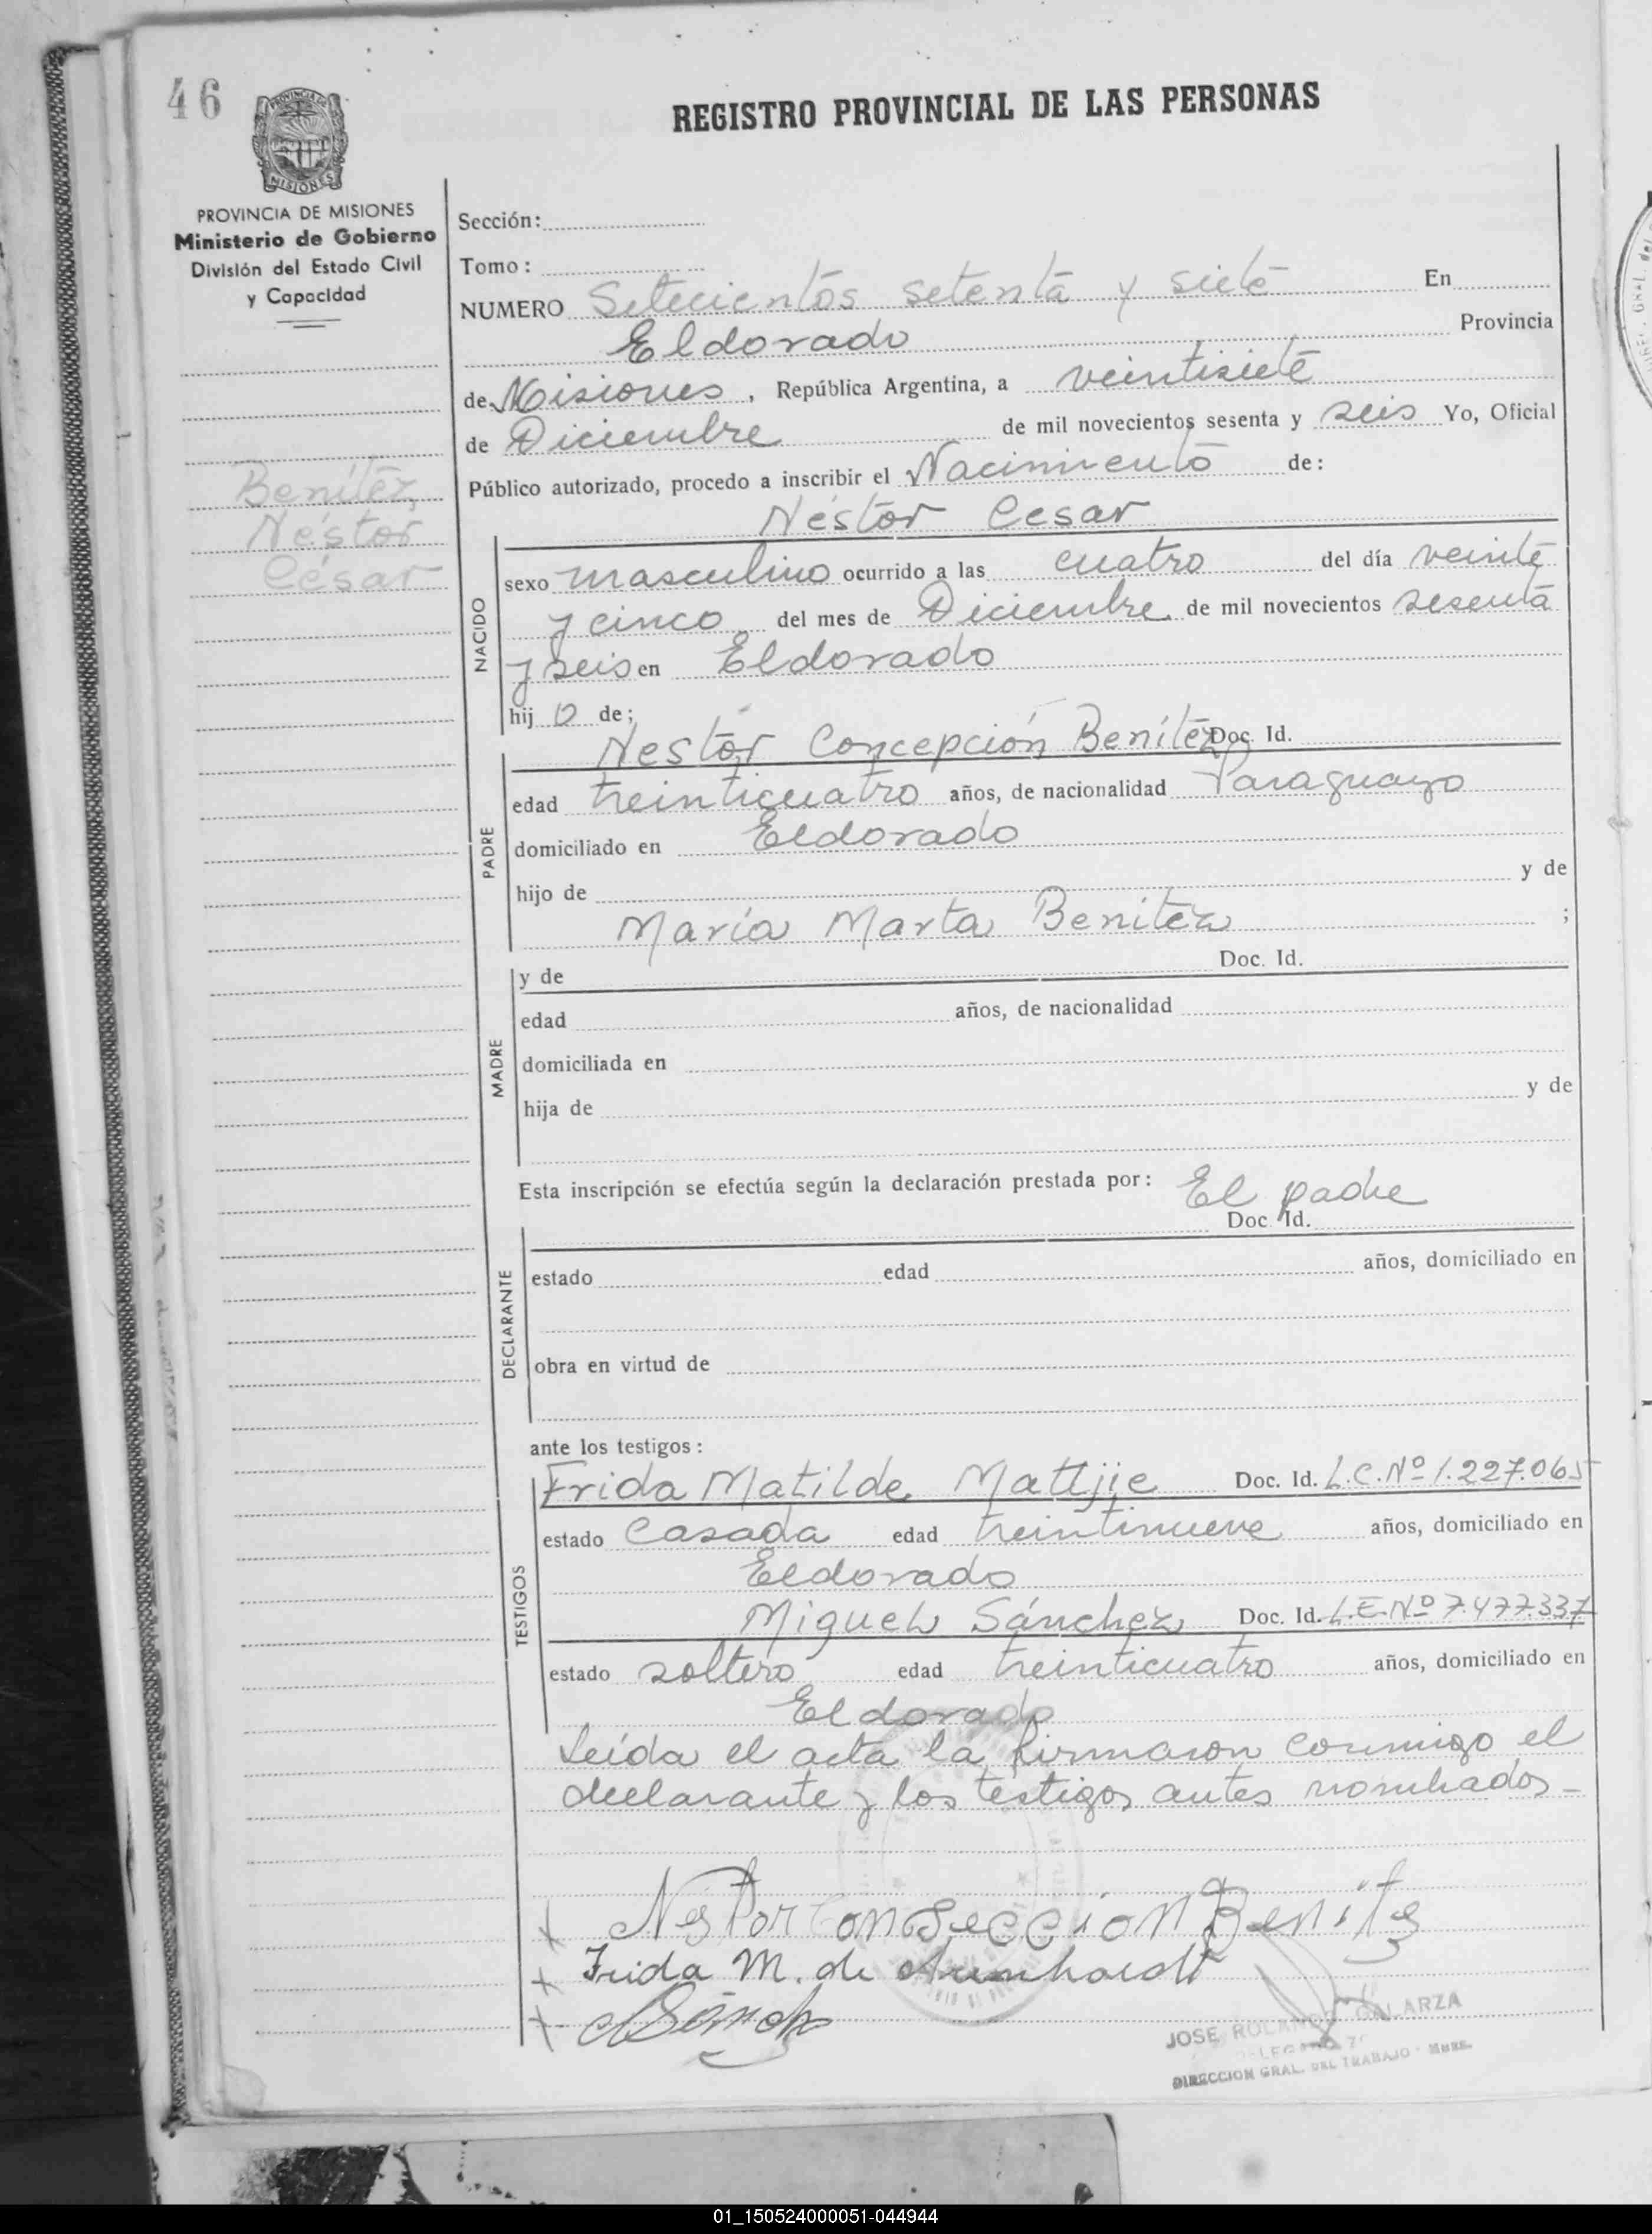 46
PROVINCIA DE
MISIONES
REGISTRO PROVINCIAL DE LAS PERSONAS
PROVINCIA DE MISIONES
Ministerio de Gobierno
División del Estado Civil
y Capacidad
Benítez,
Néstor
César
Sección:
Tomo:
NUMERO Setecientos setenta y siete En
Eldorado Provincia
de Misiones, República Argentina, a veintisiete
de Diciembre de mil novecientos sesenta y seis Yo, Oficial
Público autorizado, procedo a inscribir el Nacimiento de:
Néstor Cesar
NACIDO
sexo masculino ocurrido a las cuatro del día veinte
y cinco del mes de Diciembre de mil novecientos sesenta
y seis en Eldorado
hij o de;
Nestor Concepción Benítez Doc. Id.
PADRE
edad treinticuatro años, de nacionalidad Paraguayo
domiciliado en Eldorado
hijo de y de
María Marta Benítez ;
MADRE
y de Doc. Id.
edad años, de nacionalidad
domiciliada en
hija de y de
Esta inscripción se efectúa según la declaración prestada por: El padre
Doc. Id.
DECLARANTE
estado edad años, domiciliado en
obra en virtud de
ante los testigos:
TESTIGOS
Frida Matilde Mattjie Doc. Id. L.C.Nº 1.227.065
estado Casada edad treintinueve años, domiciliado en
Eldorado
Miguel Sánchez Doc. Id. L.E.Nº 7.477.337
estado soltero edad treinticuatro años, domiciliado en
Eldorado
Leída el acta la firmaron conmigo el
declarante y los testigos antes nombrados-
Nestor Conseccion Benites
Frida M. de
JOSE ROLANDO GALARZA
DIRECCION GRAL. DEL TRABAJO - Mnes.
01_150524000051-044944